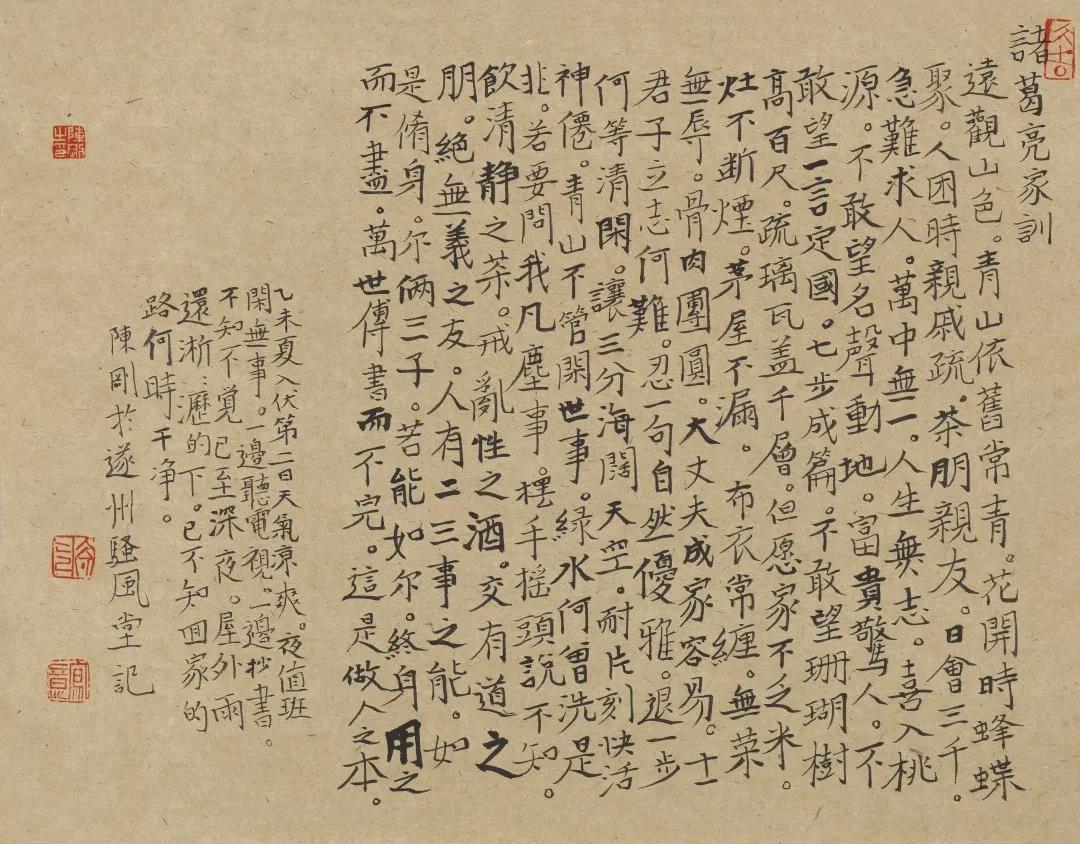 諸葛亮家訓
遠觀山色。青山依舊常青。花開時蜂蝶
聚。人困時親戚疏。茶朋親友。日會三千。
急難求人。萬中無一。人生無志。喜入桃
源。不敢望名聲動地。富貴驚人。不
敢望一言定國。七步成篇。不敢望珊瑚樹
高百尺。疏璃瓦盖千層。但愿家不乏米。
灶不断煙。茅屋不漏。布衣常纏。無菜
無辱。骨肉團圓。大丈夫成家容易。士
君子立志何難。忍一句自然優雅。退一步
何等清閑。讓三分海闊天空。耐片刻快活
神僊。青山不管閑世事。緑水何曾洗是
非。若要問我凡塵事。擺手摇頭説不知。
飲清静之茶。戒亂性之酒。交有道之
朋。絶無義之友。人有二三事之能。如
是脩身。尔俩三子。若能如尔。終身用之
而不盡。萬世傳書而不完。這是做人之本。
乙未夏入伏第二日天氣凉爽。夜值班
閑無事。一邊聽電視。一邊抄書。
不知不覺已至深夜。屋外雨
還淅瀝的下。已不知回家的
路何時干净。
陳剛於遂州騷風堂記